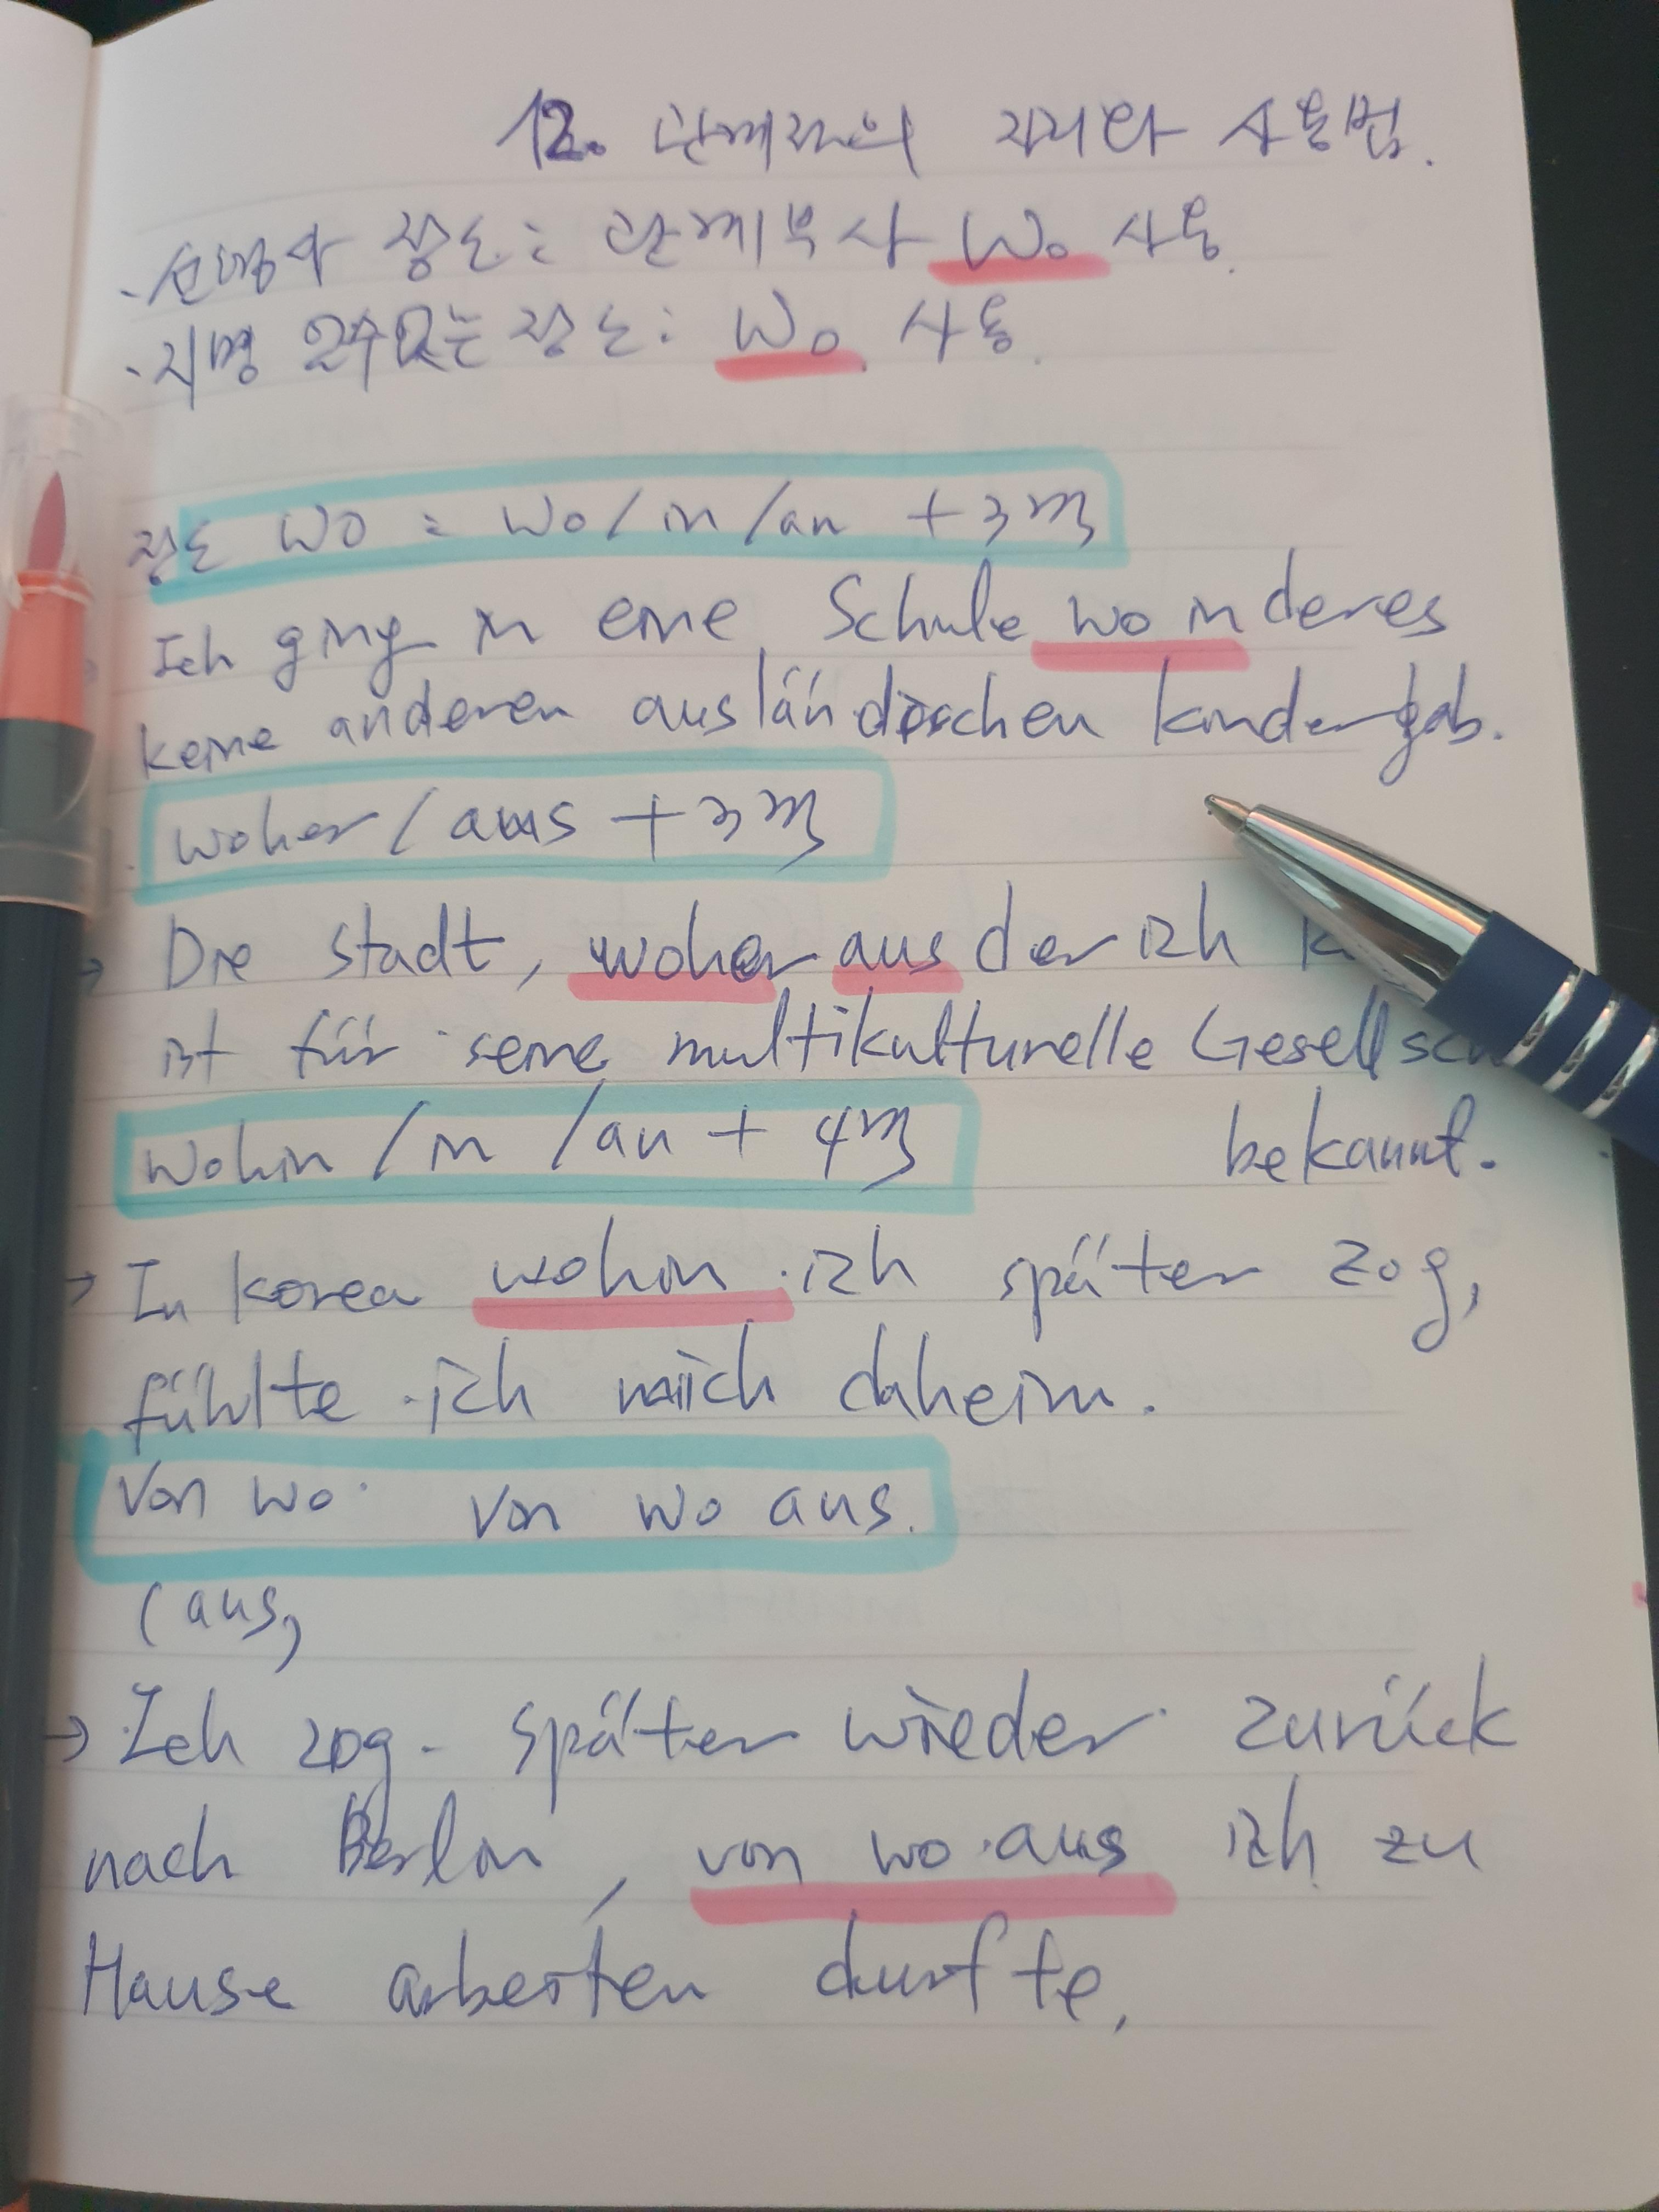 12. 관계절의 자리와 사용법.
· 선행사 장소: 관계부사 wo 사용.
· 지명 알수없는 장소: wo 사용.
장소 wo = wo / in / an + 3격
Ich ging in eine Schule wo in der es
keine anderen ausländischen kinder gab.
woher / aus + 3격
→ Die stadt, woher aus der ich
ist für seine multikulturelle
wohin / in / an + 4격
bekannt.
→ In korea wohin ich später zog,
fühlte ich mich daheim.
Von wo Von wo aus.
(aus)
→ Ich zog später wieder zurück
nach Berlin, von wo aus ich zu
Hause arbeiten durfte.